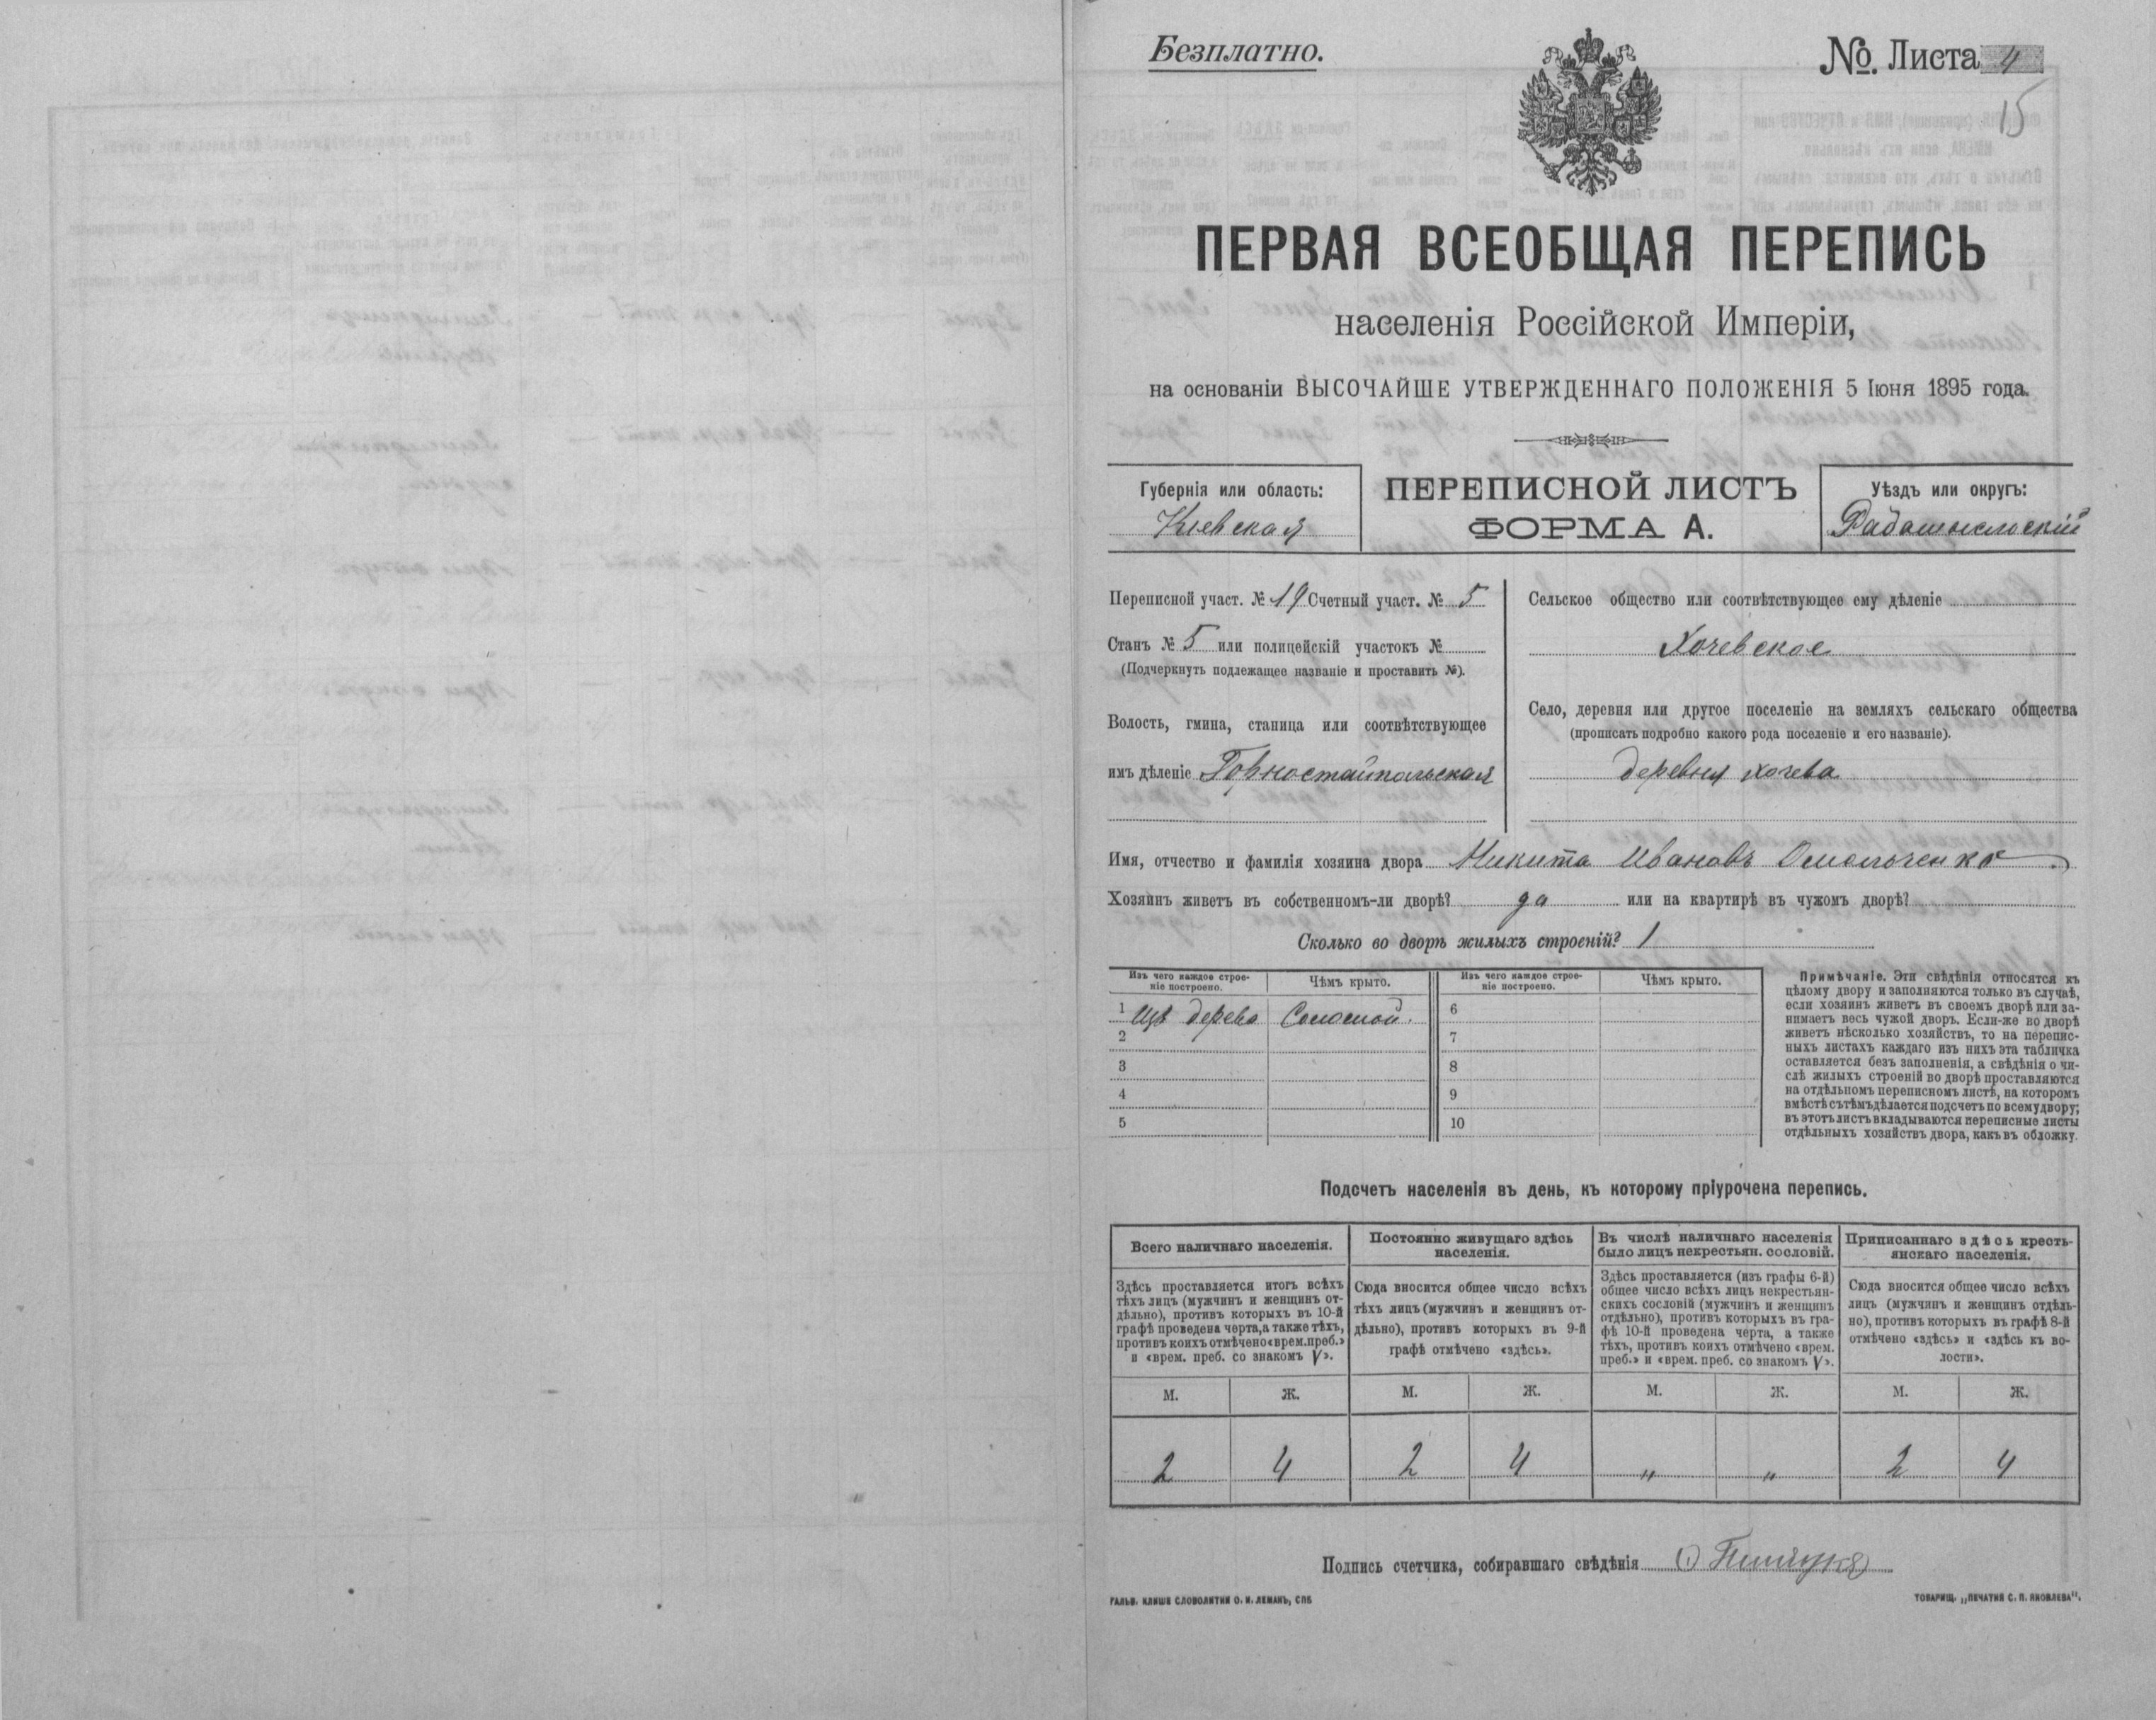 Безплатно.
№. Листа 4
15
ПЕРВАЯ ВСЕОБЩАЯ ПЕРЕПИСЬ
населенія Россійской Имперіи,
на основаніи ВЫСОЧАЙШЕ УТВЕРЖДЕННАГО ПОЛОЖЕНІЯ 5 Іюня 1895 года.
Губернія или область:
Кіевская
ПЕРЕПИСНОЙ ЛИСТЪ
ФОРМА А.
Уѣздъ или округъ:
Радомысльскій
Переписной участ. № 19 Счетный участ. № 5
Станъ № 5 или полицейскій участокъ №
(Подчеркнуть подлежащее названіе и проставить №).
Волость, гмина, станица или соотвѣтствующее
имъ дѣленіе Горностайпольская
Сельское общество или соотвѣтствующее ему дѣленіе
Хочевское
Село, деревня или другое поселеніе на земляхъ сельскаго общества
(прописать подробно какого рода поселеніе и его названіе).
деревня хочева
Имя, отчество и фамилія хозяина двора Никита Ивановъ
Хозяинъ живетъ въ собственномъ-ли дворѣ? да или на квартирѣ въ чужомъ дворѣ?
Сколько во дворѣ жилыхъ строеній? 1
Изъ чего каждое строе-
ніе построено.
Чѣмъ крыто.
Изъ чего каждое строе-
ніе построено.
Чѣмъ крыто.
1 Изъ дерева Соломой.
2
3
4
5
6
7
8
9
10
Примѣчаніе. Эти свѣдѣнія относятся къ
цѣлому двору и заполняются только въ случаѣ,
если хозяинъ живетъ въ своемъ дворѣ или за-
нимаетъ весь чужой дворъ. Если-же во дворѣ
живетъ нѣсколько хозяйствъ, то на перепис-
ныхъ листахъ каждаго изъ нихъ эта табличка
оставляется безъ заполненія, а свѣдѣнія о чи-
слѣ жилыхъ строеній во дворѣ проставляются
на отдѣльномъ переписномъ листѣ, на которомъ
вмѣстѣ съ тѣмъ дѣлается подсчетъ по всему двору;
въ этотъ листъ вкладываются переписные листы
отдѣльныхъ хозяйствъ двора, какъ въ обложку.
Подсчетъ населенія въ день, къ которому пріурочена перепись.
Всего наличнаго населенія.
Здѣсь проставляется итогъ всѣхъ
тѣхъ лицъ (мужчинъ и женщинъ от-
дѣльно), противъ которыхъ въ 10-й
графѣ проведена черта, а также тѣхъ,
противъ коихъ отмѣчено «врем. преб.»
и «врем. преб. со знакомъ V».
Постоянно живущаго здѣсь
населенія.
Сюда вносится общее число всѣхъ
тѣхъ лицъ (мужчинъ и женщинъ от-
дѣльно), противъ которыхъ въ 9-й
графѣ отмѣчено «здѣсь».
Въ числѣ наличнаго населенія
было лицъ некрестьян. сословій.
Здѣсь проставляется (изъ графы 6-й)
общее число всѣхъ лицъ некрестьян-
скихъ сословій (мужчинъ и женщинъ
отдѣльно), противъ которыхъ въ гра-
фѣ 10-й проведена черта, а также
тѣхъ, противъ коихъ отмѣчено «врем.
преб.» и «врем. преб. со знакомъ V».
Приписаннаго здѣсь кресть-
янскаго населенія.
Сюда вносится общее число всѣхъ
лицъ (мужчинъ и женщинъ отдѣль-
но), противъ которыхъ въ графѣ 8-й
отмѣчено «здѣсь» и «здѣсь къ во-
лости».
М. Ж. М. Ж. М. Ж. М. Ж.
2 4 2 4 " " 2 4
Подпись счетчика, собиравшаго свѣдѣнія
ГАЛЬВ. КЛИШЕ СЛОВОЛИТНИ О. И. ЛЕМАНЪ, СПБ
ТОВАРИЩ. „ПЕЧАТНЯ С. П. ЯКОВЛЕВА".